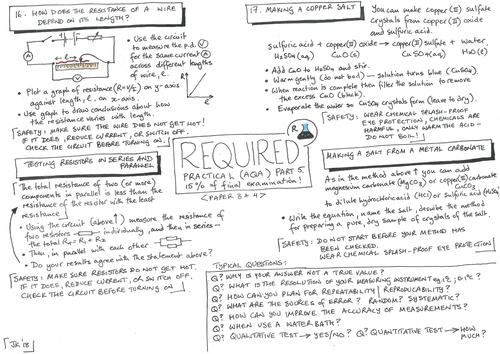 16. HOW DOES THE RESISTANCE OF A WIRE
DEPEND ON ITS LENGTH?
• Use the circuit
to measure the p.d. V
for the same current A
across different lengths
of wire, l.
• Plot a graph of resistance (R=V/I) on y-axis
against length, l, on x-axis.
• Use graph to draw conclusions about how
the resistance varies with length.
SAFETY: MAKE SURE THE WIRE DOES NOT GET HOT!
IF IT DOES, REDUCE CURRENT, OR SWITCH OFF.
CHECK THE CIRCUIT BEFORE TURNING ON!
TESTING RESISTORS IN SERIES AND
PARALLEL
The total resistance of two (or more)
components in parallel is less than the
resistance of the resistor with the least
resistance.
• Using the circuit (above↑) measure the resistance of
two resistors individually, and then in series –
the total R₁ + R₂
• Then, in parallel with each other
• Do your results agree with the statement above?
SAFETY: MAKE SURE RESISTORS DO NOT GET HOT.
IF IT DOES, REDUCE CURRENT, OR SWITCH OFF.
CHECK THE CIRCUIT BEFORE TURNING ON
JK'18
R
REQUIRED
PRACTICAL (AQA) PART 5.
15% of final examination!
<PAPER 3 + 4>
17. MAKING A COPPER SALT
You can make copper (II) sulfate
crystals from copper (II) oxide
and sulfuric acid.
sulfuric acid + copper(II) oxide → copper(II) sulfate + water
H₂SO₄(aq) CuO(s) CuSO₄(aq) H₂O(l)
• Add CuO to H₂SO₄ and stir.
• Warm gently (do not boil) – solution turns blue (CuSO₄).
• When reaction is complete then filter the solution to remove
the excess CuO (black).
• Evaporate the water so CuSO₄ crystals form (leave to dry).
SAFETY: WEAR CHEMICAL SPLASH-PROOF
EYE PROTECTION, CHEMICALS ARE
HARMFUL, ONLY WARM THE ACID –
DO NOT BOIL!
MAKING A SALT FROM A METAL CARBONATE
As in the method above ↑ you can add
magnesium carbonate (MgCO₃) or copper(II) carbonate
CuCO₃
to dilute hydrochloric (HCl) or sulfuric acid (H₂SO₄)
• Write the equation, name the salt, describe the method
for preparing a pure, dry sample of crystals of the salt.
SAFETY: DO NOT START BEFORE YOUR METHOD HAS
BEEN CHECKED.
WEAR CHEMICAL SPLASH-PROOF EYE PROTECTION
TYPICAL QUESTIONS:
Q? WHY IS YOUR ANSWER NOT A TRUE VALUE?
Q? WHAT IS THE RESOLUTION OF YOUR MEASURING INSTRUMENT eg. 1°C; 0.1°C?
Q? HOW CAN YOU PLAN FOR REPEATABILITY/REPRODUCIBILITY?
Q? WHAT ARE THE SOURCES OF ERROR? RANDOM? SYSTEMATIC?
Q? HOW CAN YOU IMPROVE THE ACCURACY OF MEASUREMENTS?
Q? WHEN USE A WATER BATH?
Q? QUALITATIVE TEST → YES/NO? Q? QUANTITATIVE TEST → HOW
MUCH?